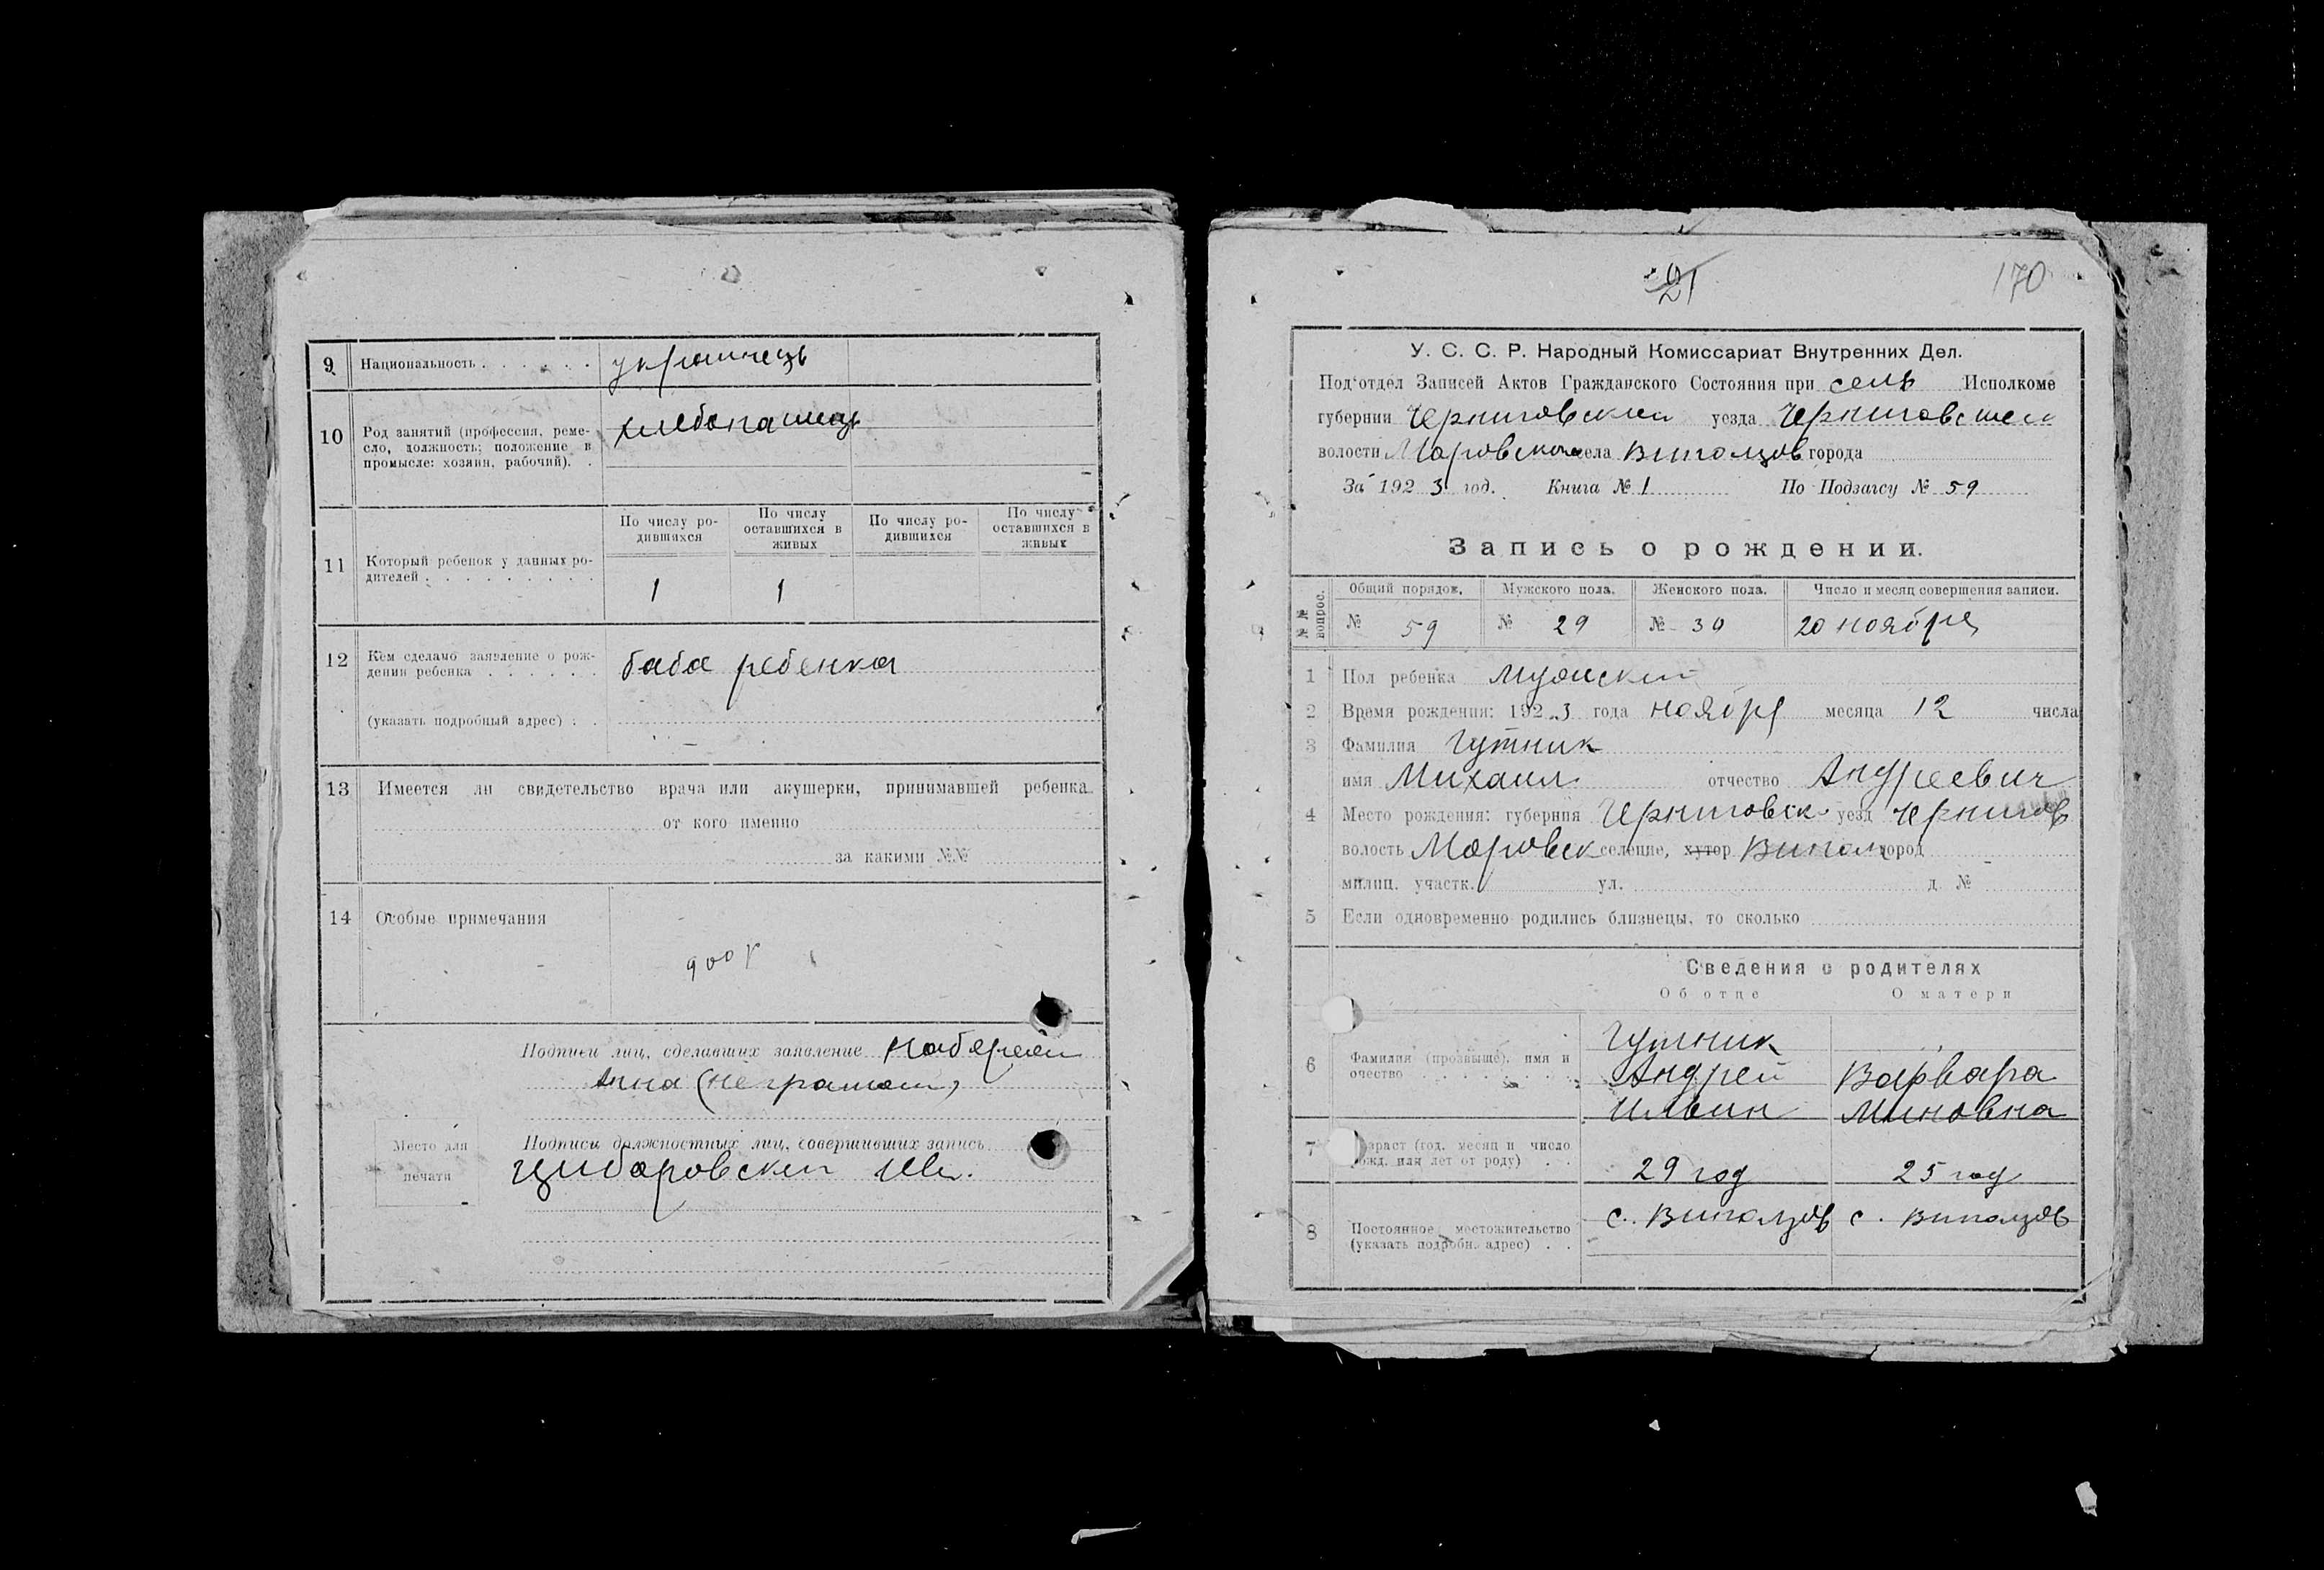 9 Национальность украинець
10 Род занятий (профессия, реме-
сло, должность; положение в
промысле: хозяин, рабочий). хлебопашець
11 Который ребенок у данных ро-
дителей
По числу ро-
дившихся
По числу
оставшихся в
живых
По числу ро-
дившихся
По числу
оставшихся в
живых
1 1
12 Кем сделано заявление о рож-
дении ребенка баба ребенка
(указать подробный адрес)
13 Имеется ли свидетельство врача или акушерки, принимавшей ребенка
от кого именно
за какими №№
14 Особые примечания
Подписи лиц, сделавших заявление
Анна (неграмот)
Место для
печати
Подписи должностных лиц, совершивших запись
Цибаровский
21 170
У. С. С. Р. Народный Комиссариат Внутренних Дел.
Под'отдел Записей Актов Гражданского Состояния при сель Исполкоме
губернии Черниговской уезда Черниговской
волости Моровской села Виползов города
За 1923 год. Книга № 1 По Подзагсу № 59
Запись о рождении.
№№ вопрос.
Общий порядок. Мужского пола. Женского пола. Число и месяц совершения записи.
№ 59 № 29 № 30 20 ноября
1 Пол ребенка Мужский
2 Время рождения: 1923 года ноября месяца 12 числа
3 Фамилия Гутник
имя Михаил отчество Андреевич
4 Место рождения: губерния Черниговск уезд Чернигов
волость Моровск селение, хутор Випол город
милиц. участк. ул. д. №
5 Если одновременно родились близнецы, то сколько
Сведения о родителях
Об отце О матери
6 Фамилия (прозвыще), имя и
очество
Гутник
Андрей Варвара
Ильин Миновна
7 Возраст (год, месяц и число
рожд. или лет от роду) 29 год 25 год
8 Постоянное местожительство
(указать подробн. адрес) с. Виползов с. Виползов